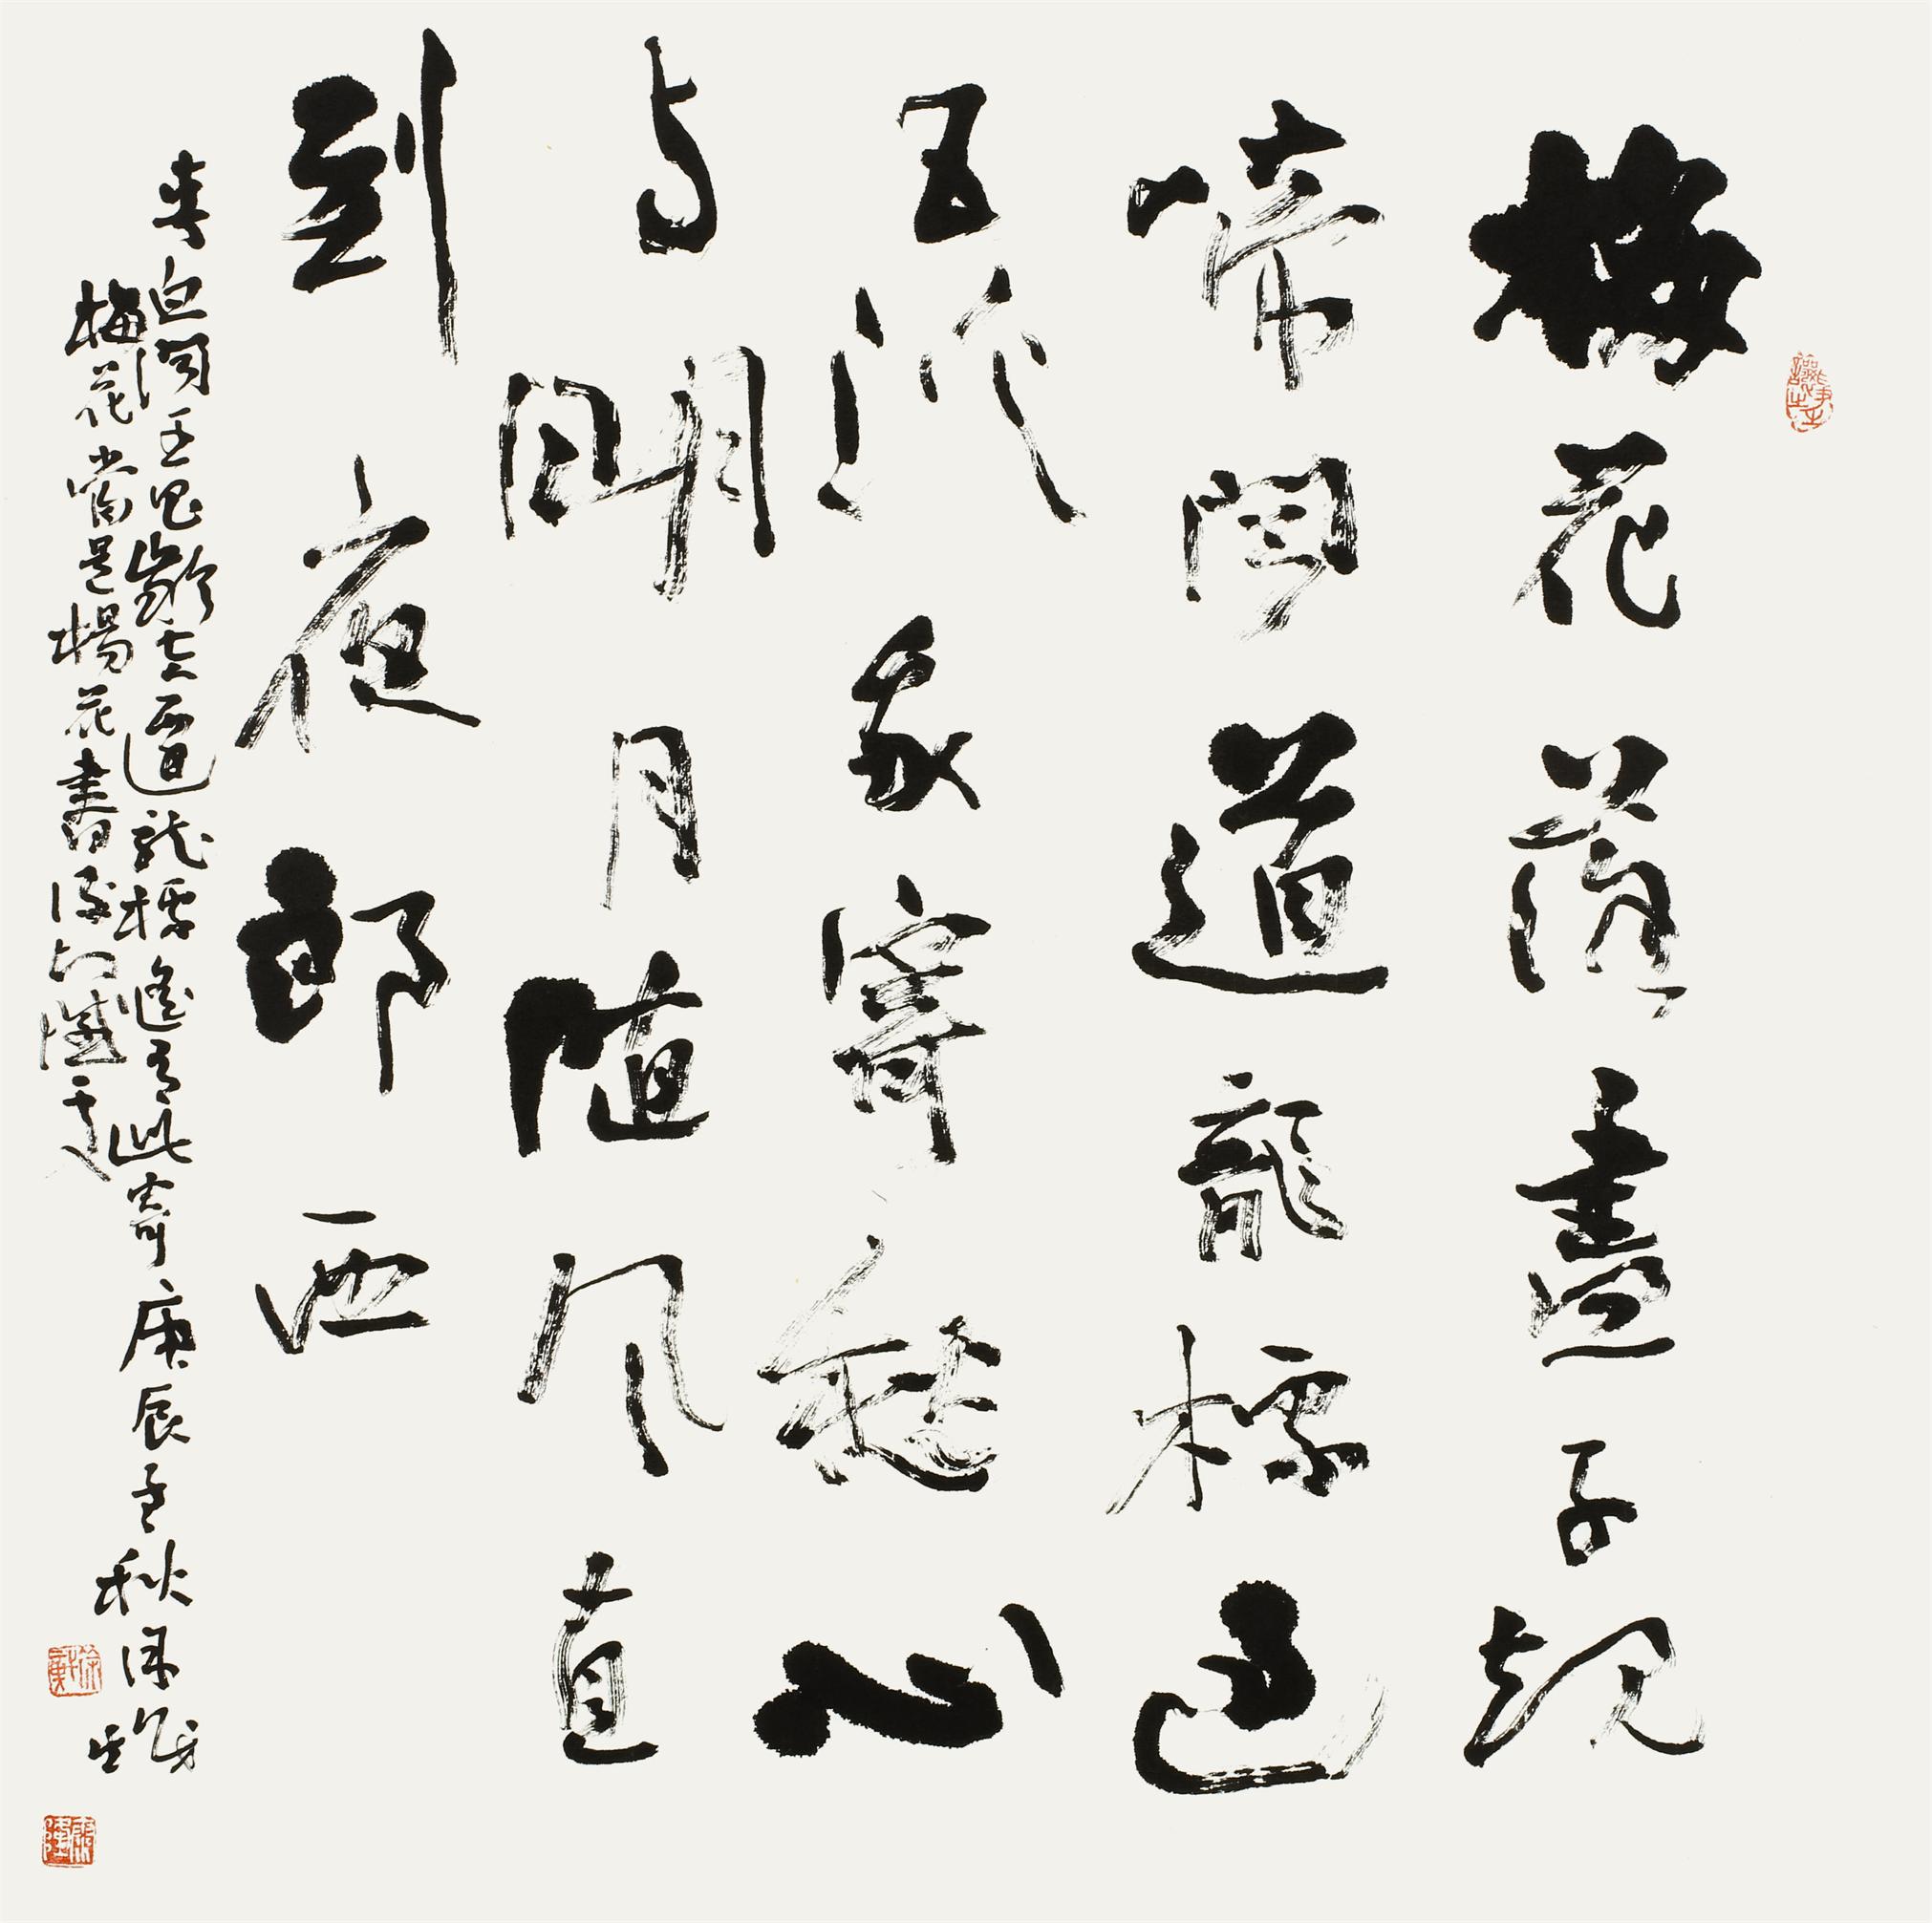 梅花落盡子規
啼聞道龍標過
五溪我寄愁心
与明月随风直
到夜郎西
李白聞王昌齡左遷龍標遙有此寄庚辰孟秋
梅花當是楊花書後